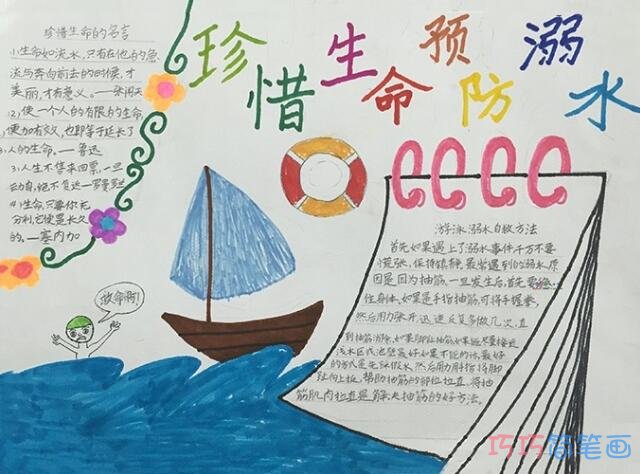 珍惜生命 预防溺水
珍惜生命的名言
1、生命如流水,只有在他的急
流与奔向前去的时候,才
美丽,才有意义。—张闻天
(2)使一个人的有限的生命,
更加有效,也即等于延长了
人的生命。—鲁迅
(3)人生不售来回票,一旦
动身,绝不复返—罗曼
(4)生命,只要你充
分利,它便是长久
的。—塞内加
救命啊!
游泳溺水自救方法
首先如果遇上了溺水事件千万不要
慌张,保持镇静,最常遇到的溺水原
因是因为抽筋,一旦发生后,首先要
住身体,如果是手指抽筋,可将手握拳,
然后用力张开,迅速反复多做几次,直
到抽筋消除,如果
浅水区或池壁最好如果不能的话,最好
的方式是先深假水,然后用力胖指将脚
趾向上扳,帮助抽筋的部位拉直,将抽
筋肌肉拉直是解决抽筋的好方法。
巧巧简笔画